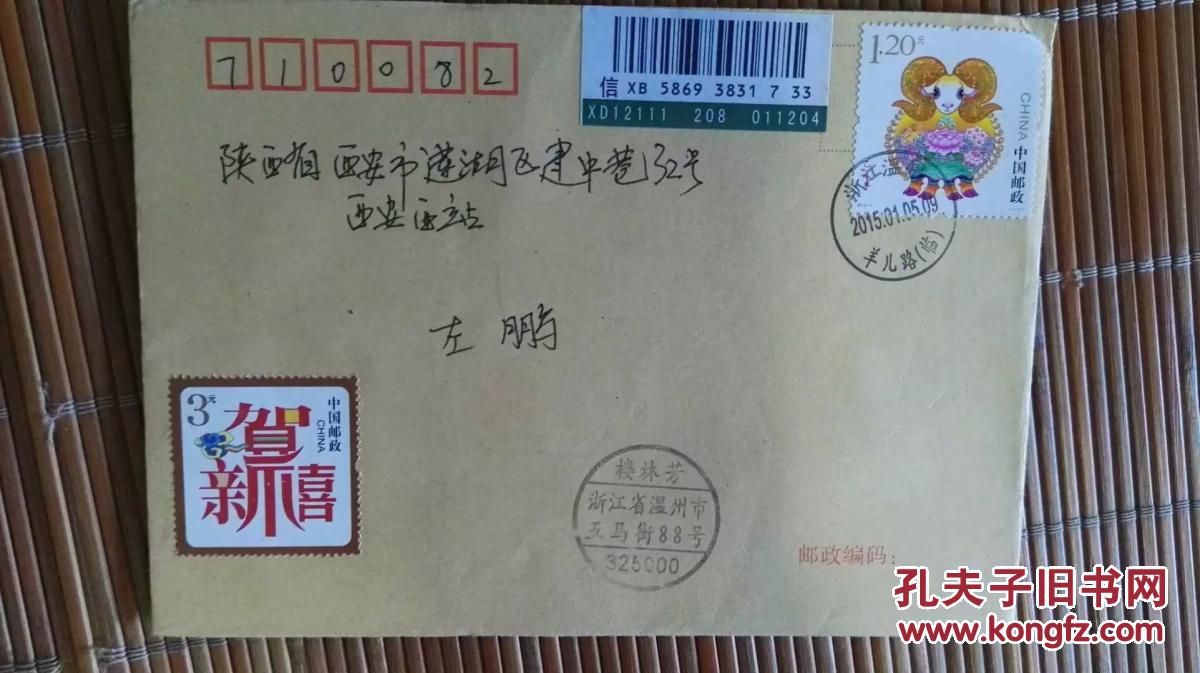 710082
信 XB 5869 3831 7 33
XD12111 208 011204
1.20元
CHINA 中国邮政
陕西省西安市莲湖区建中巷132号
西安西站
浙江温
2015.01.05.09
羊儿路(临)
左 鹏
3元
中国邮政
CHINA
贺
新禧
楼林芳
浙江省温州市
五马街88号
325000
邮政编码：
孔夫子旧书网
www.kongfz.com